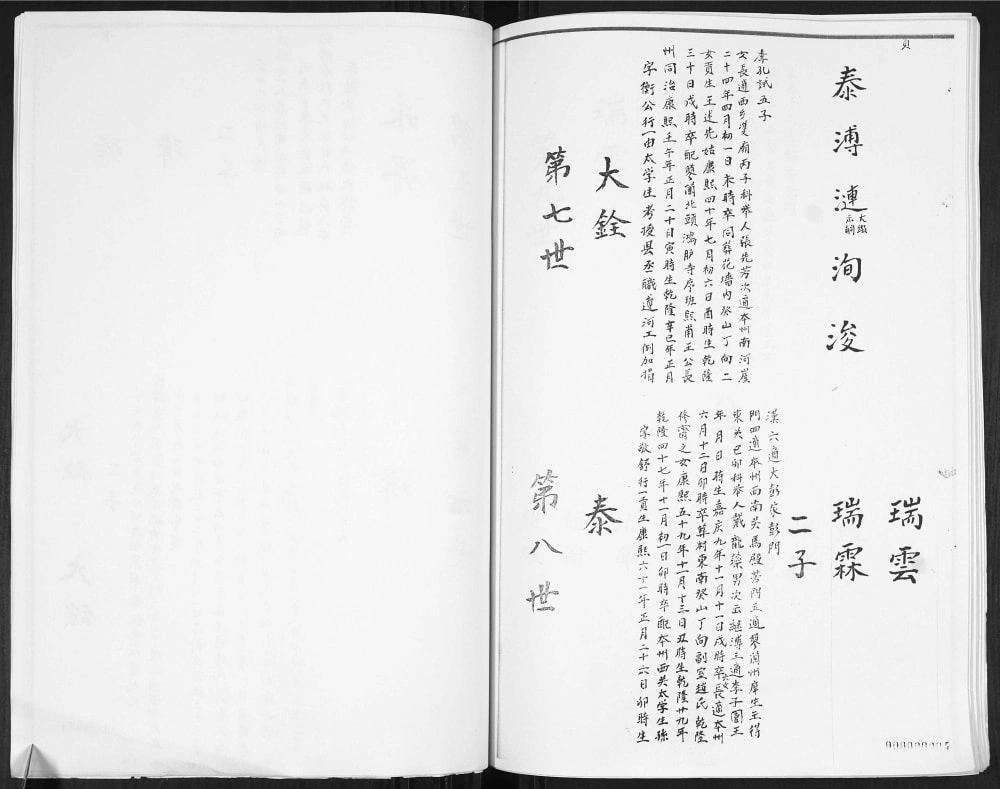 第七世
大銓
字衡公行一由太学生考授县丞職遵河工例加捐
州同治康熙壬午年正月二十日寅時生乾隆辛巳年正月
三十日戌時卒配蓼蘭北頭鴻胪寺序班熙甫王公長
女貢生王述先姑康熙四十年七月初六日酉時生乾隆
二十四年四月初一日未時卒同葬花墻内癸山丁向二
女長適西乡廂丙子科举人張先芳次適本州南河崖
李孔試五子
泰溥漣洵浚
大
出嗣
第八世
泰
字敬舒行一貢生康熙六十一年正月二十六日卯時生
乾隆四十七年十一月初一日卯時卒配本州西关太学生孫
修齋之女康熙五十九年十一月十三日丑時生乾隆廿九年
六月十二日卯時卒葬村東南癸山丁向副室趙氏乾隆
年月日時生嘉庆九年十一月十一日戌時卒六女長適本州
東关已卯科举人戴龍藻男次出継溥三適李子園王
門四適本州西南关馬殿芳門五適蓼蘭州庠生王得
漢六適大彭家彭門
二子
瑞霖
瑞雲
頁